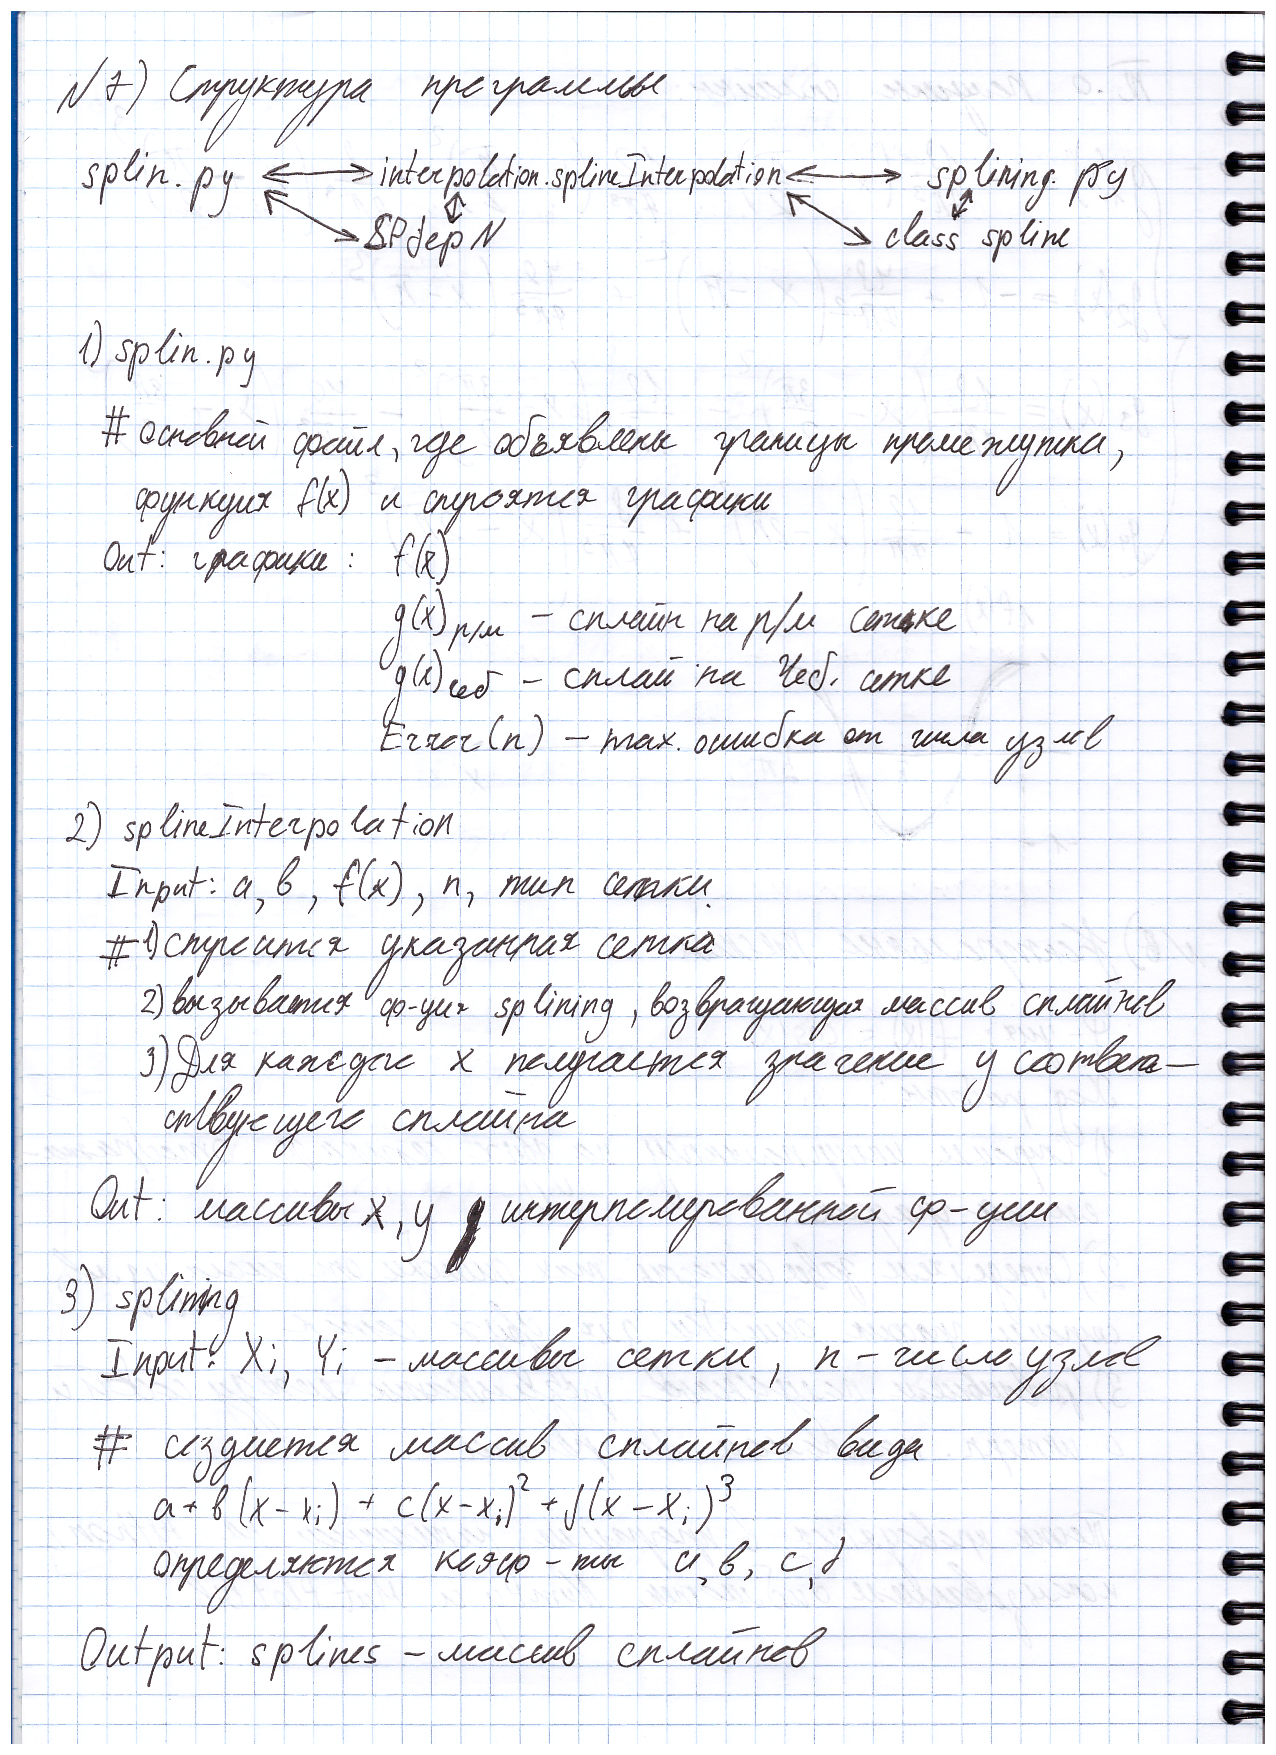 №7) Структура программы
splin.py ⟷ interpolation.splineInterpolation ⟷ splining.py
class spline
1) splin.py
# основной файл, где объявлены границы промежутка,
функция f(x) и строятся графики
Out: графики: f(x)
g(x) р/м – сплайн на р/м сетке
g(x) чеб – сплай на Чеб. сетке
Error(n) – max. ошибка от числа узлов
2) splineInterpolation
Input: a, b, f(x), n, тип сетки.
# 1) строится указанная сетка
2) вызывается ф-ция splining, возвращающая массив сплайнов
3) Для каждого x получается значение y соответ-
ствующего сплайна
Out: массивы x, y интерполированной ф-ции
3) splining
Input: Xi, Yi – массивы сетки, n – число узлов
# создается массив сплайнов вида
a + b(x-xi) + c(x-xi)² + d(x-xi)³
определяются коэф-ты a, b, c, d
Output: splines – массив сплайнов